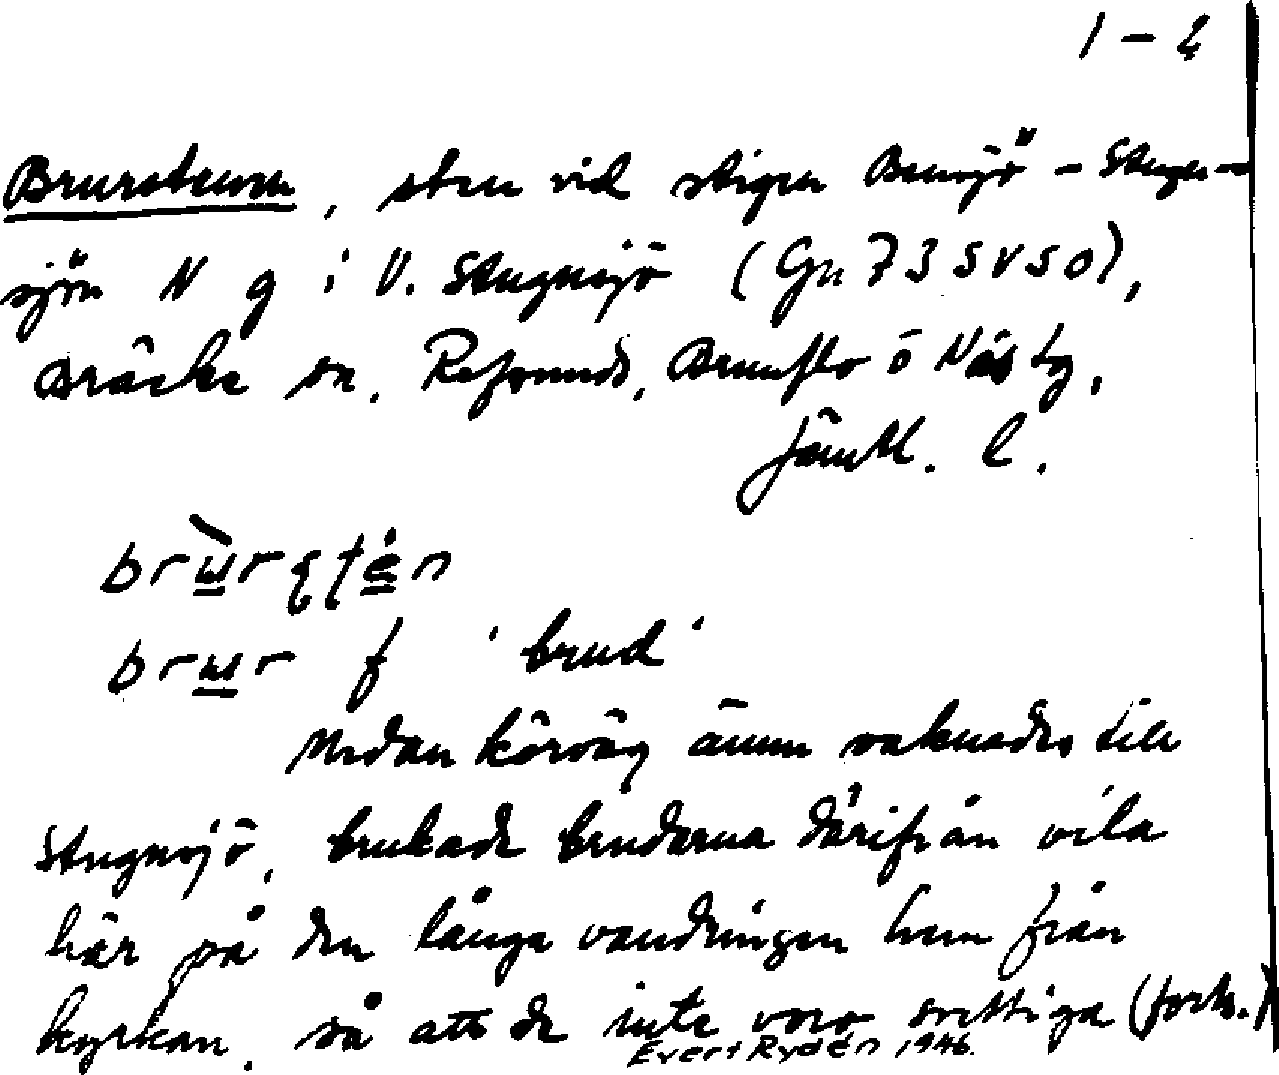 1 – 2
Brurstenen, sten vid stigen Bensjö – Stugu-
sjön N g i V. Stugusjö (Gn 73 SVSO),
Bräcke sn, Refsunds, Brunflo o Näs tg,
Jämtl. l.
brùrstén
brur f 'brud'
Medan körväg ännu saknades till
Stugusjö, brukade brudarna därifrån vila
här på den långa vandringen hem från
kyrkan, så att de inte voro svettiga (forts.)
Evert Rydén 1946.